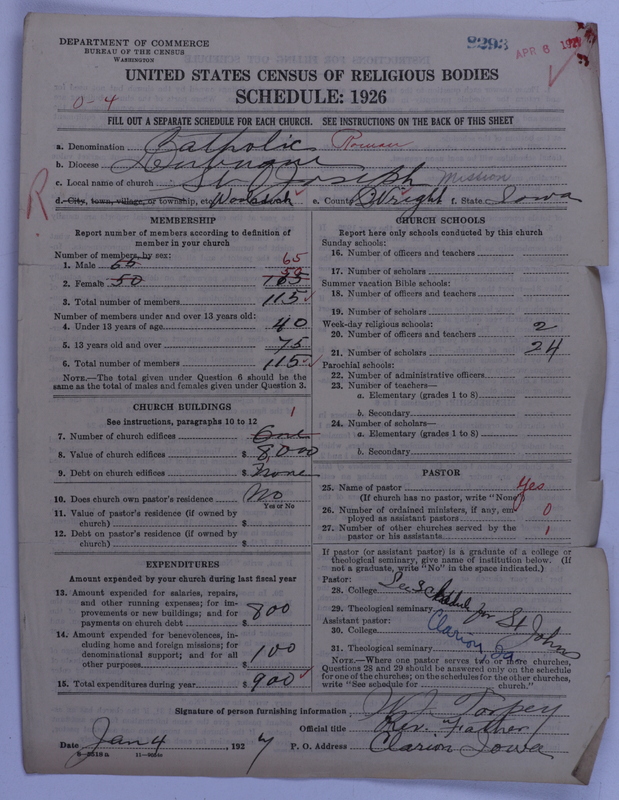 DEPARTMENT OF COMMERCE
BUREAU OF THE CENSUS
WASHINGTON
8293
APR 6 192
UNITED STATES CENSUS OF RELIGIOUS BODIES
SCHEDULE: 1926
0-4
FILL OUT A SEPARATE SCHEDULE FOR EACH CHURCH. SEE INSTRUCTIONS ON THE BACK OF THIS SHEET
a. Denomination Catholic Roman
b. Diocese Dubuque
c. Local name of church St Joseph Mission
R
d. City, town, village, or township, etc. Woolstock e. County Wright f. State Iowa
MEMBERSHIP
Report number of members according to definition of
member in your church
Number of members, by sex:
1. Male 65 65
2. Female 50 50
3. Total number of members 115
Number of members under and over 13 years old:
4. Under 13 years of age 40
5. 13 years old and over 75
6. Total number of members 115
NOTE.—The total given under Question 6 should be the
same as the total of males and females given under Question 3.
CHURCH BUILDINGS
See instructions, paragraphs 10 to 12
7. Number of church edifices One 1
8. Value of church edifices $ 8,000
9. Debt on church edifices $ None
10. Does church own pastor's residence No
Yes or No
11. Value of pastor's residence (if owned by
church) $
12. Debt on pastor's residence (if owned by
church) $
EXPENDITURES
Amount expended by your church during last fiscal year
13. Amount expended for salaries, repairs,
and other running expenses; for im-
provements or new buildings; and for
payments on church debt $ 800
14. Amount expended for benevolences, in-
cluding home and foreign missions; for
denominational support; and for all
other purposes $ 100
15. Total expenditures during year $ 900
CHURCH SCHOOLS
Report here only schools conducted by this church
Sunday schools:
16. Number of officers and teachers
17. Number of scholars
Summer vacation Bible schools:
18. Number of officers and teachers
19. Number of scholars
Week-day religious schools:
20. Number of officers and teachers 2
21. Number of scholars 24
Parochial schools:
22. Number of administrative officers
23. Number of teachers—
a. Elementary (grades 1 to 8)
b. Secondary
24. Number of scholars—
a. Elementary (grades 1 to 8)
b. Secondary
PASTOR
25. Name of pastor Yes
(If church has no pastor, write "None")
26. Number of ordained ministers, if any, em-
ployed as assistant pastors 0
27. Number of other churches served by the
pastor or his assistants 1
If pastor (or assistant pastor) is a graduate of a college or
theological seminary, give name of institution below. (If
not a graduate, write "No" in the space indicated.)
Pastor:
28. College See Schedule for St Johns
29. Theological seminary
Assistant pastor: Clarion Ia
30. College
31. Theological seminary
NOTE.—Where one pastor serves two or more churches,
Questions 28 and 29 should be answered only on the schedule
for one of the churches; on the schedules for the other churches,
write "See schedule for church."
Signature of person furnishing information W. J. Torpey
Official title Rev. Father
Date Jan 4, 1927 P. O. Address Clarion Iowa